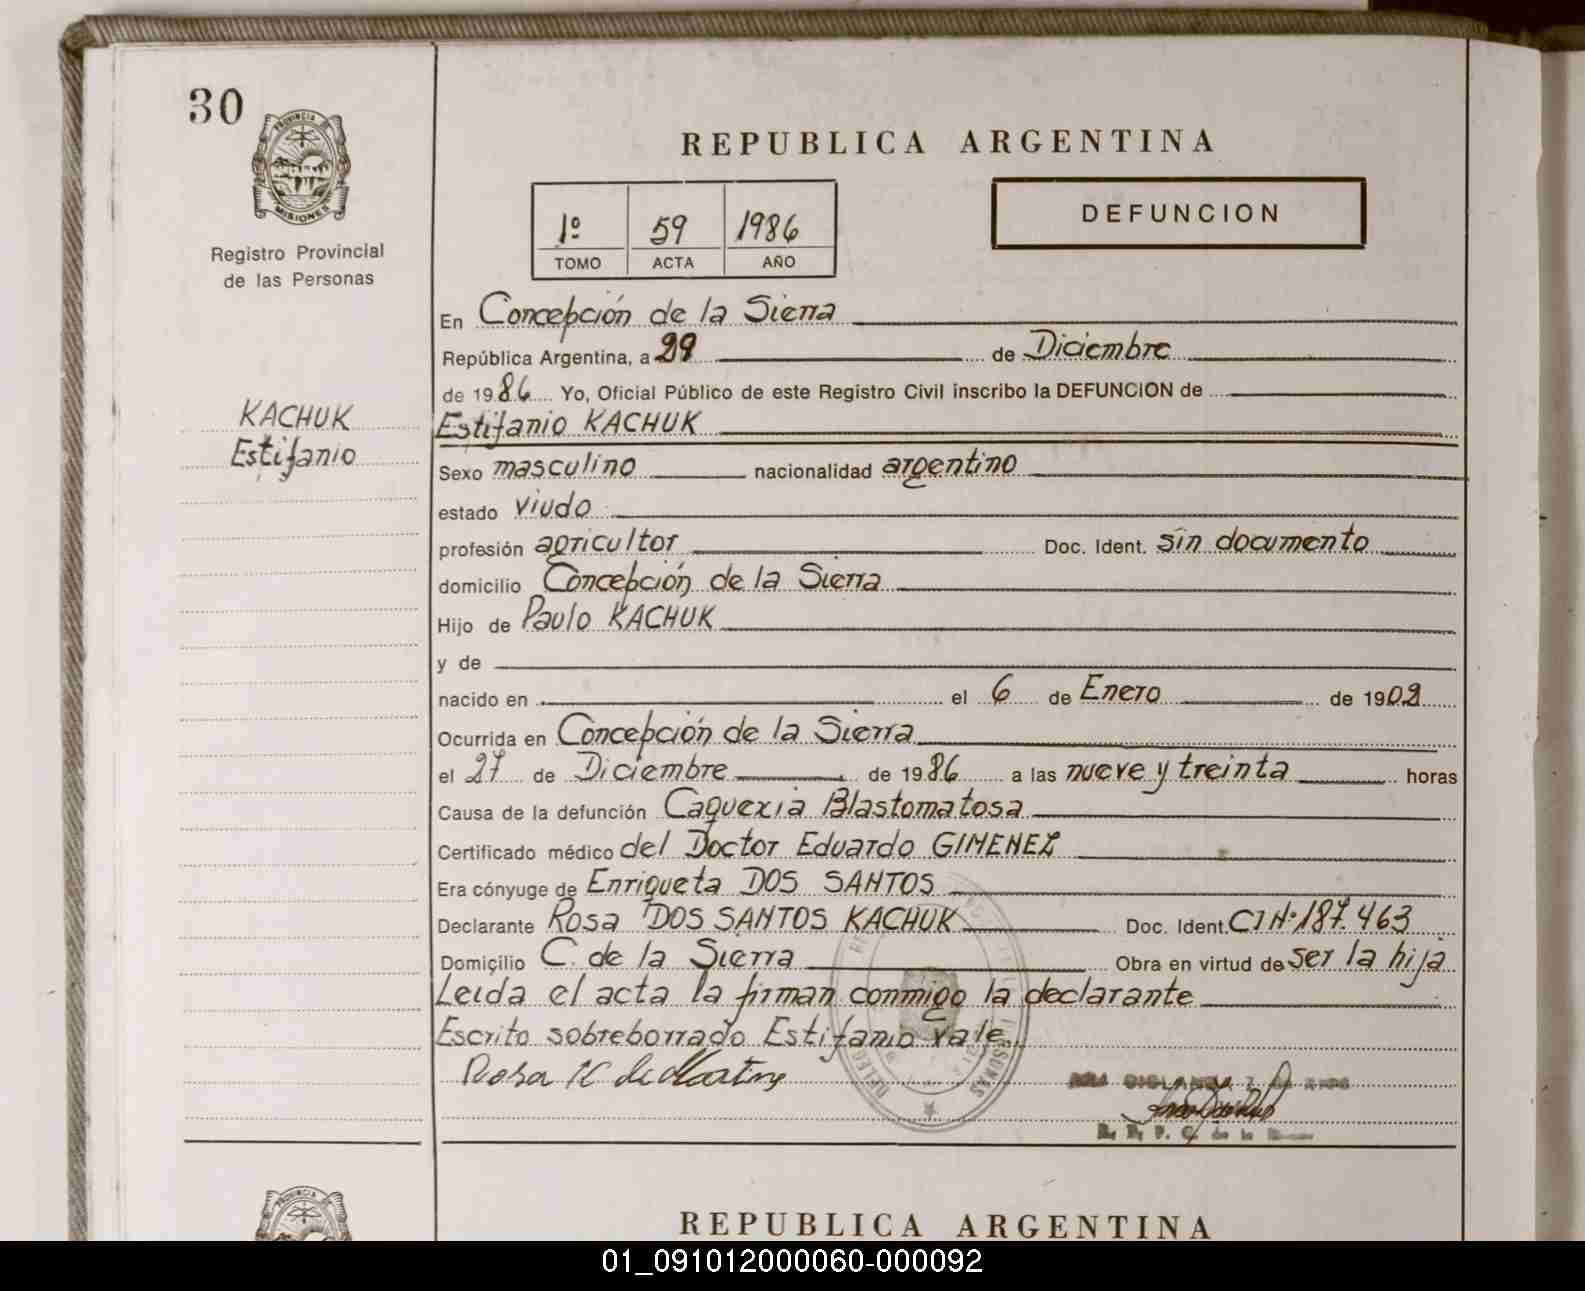 30
PROVINCIA DE
MISIONES
Registro Provincial
de las Personas
KACHUK
Estifanio
REPUBLICA ARGENTINA
1º 59 1986
TOMO ACTA AÑO
DEFUNCION
En Concepción de la Sierra
República Argentina, a 29 de Diciembre
de 1986 Yo, Oficial Público de este Registro Civil inscribo la DEFUNCION de
Estifanio KACHUK
Sexo masculino nacionalidad argentino
estado viudo
profesión agricultor Doc. Ident. sin documento
domicilio Concepción de la Sierra
Hijo de Paulo KACHUK
y de
nacido en el 6 de Enero de 1902
Ocurrida en Concepción de la Sierra
el 27 de Diciembre de 1986 a las nueve y treinta horas
Causa de la defunción Caquexia Blastomatosa
Certificado médico del Doctor Eduardo GIMENEZ
Era cónyuge de Enriqueta DOS SANTOS
Declarante Rosa DOS SANTOS KACHUK Doc. Ident. CI Nº 187.463
Domicilio C. de la Sierra Obra en virtud de ser la hija
Leida el acta la firman conmigo la declarante
Escrito sobreborrado Estifanio vale.
Rosa K de
REPUBLICA ARGENTINA
01_091012000060-000092